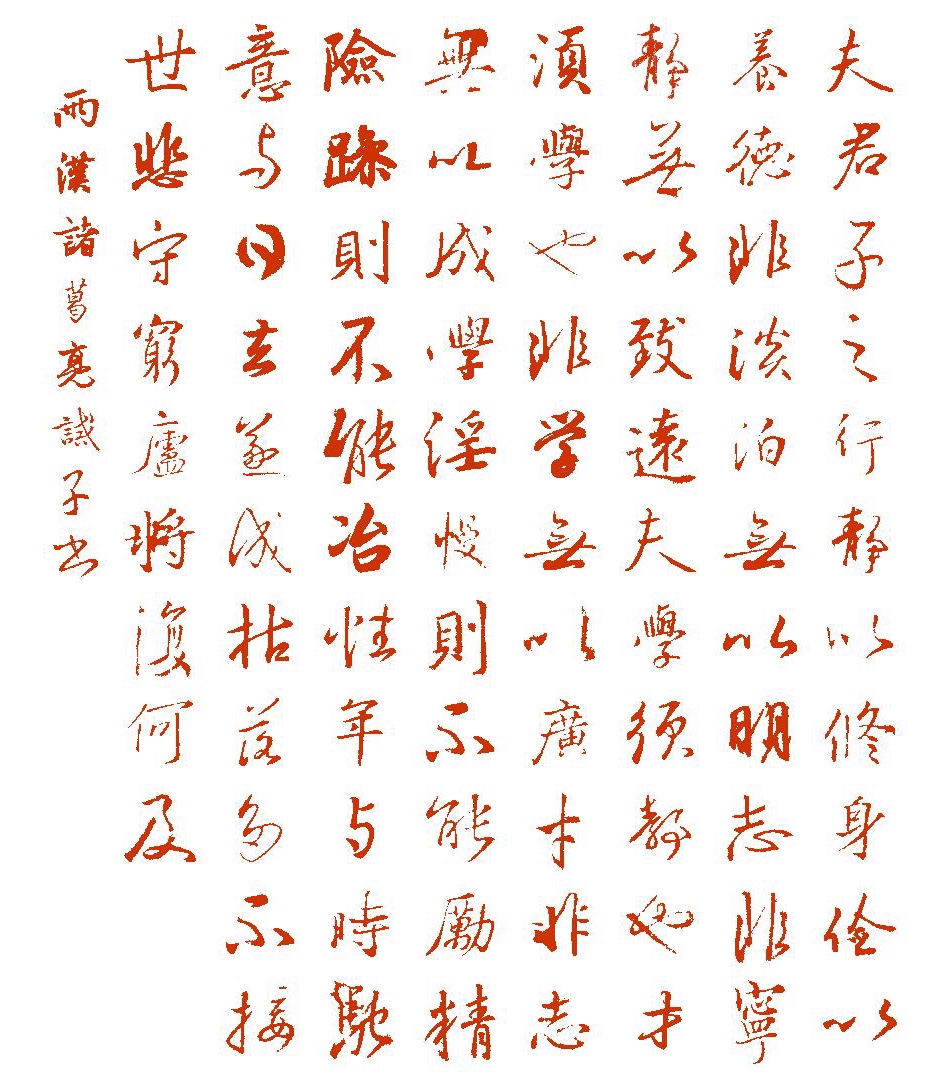 夫君子之行静以修身俭以
養德非淡泊無以明志非寧
静無以致遠夫學须静也才
須學也非学無以廣才非志
無以成學淫慢則不能勵精
險躁則不能冶性年与時馳
意与日去遂成枯落多不接
世悲守窮廬將復何及
两漢諸葛亮誡子书